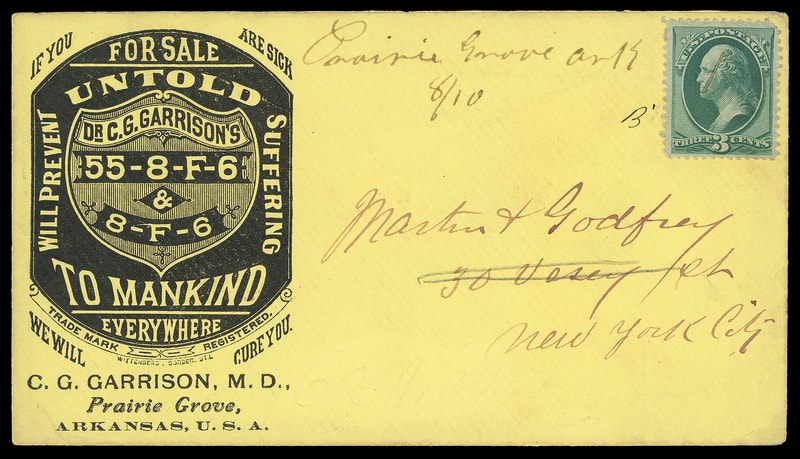 IF YOU
ARE SICK
FOR SALE
UNTOLD
WILL PREVENT
SUFFERING
DR C. G. GARRISON'S
55-8-F-6
&
8-F-6
TO MANKIND
EVERYWHERE
TRADE MARK
REGISTERED.
WE WILL
CURE YOU.
C. G. GARRISON, M. D.,
Prairie Grove,
ARKANSAS, U. S. A.
Prairie Grove Ark
8/10
B
U.S. POSTAGE
THREE 3 CENTS
Martin & Godfrey
30 Vesey St
New York City